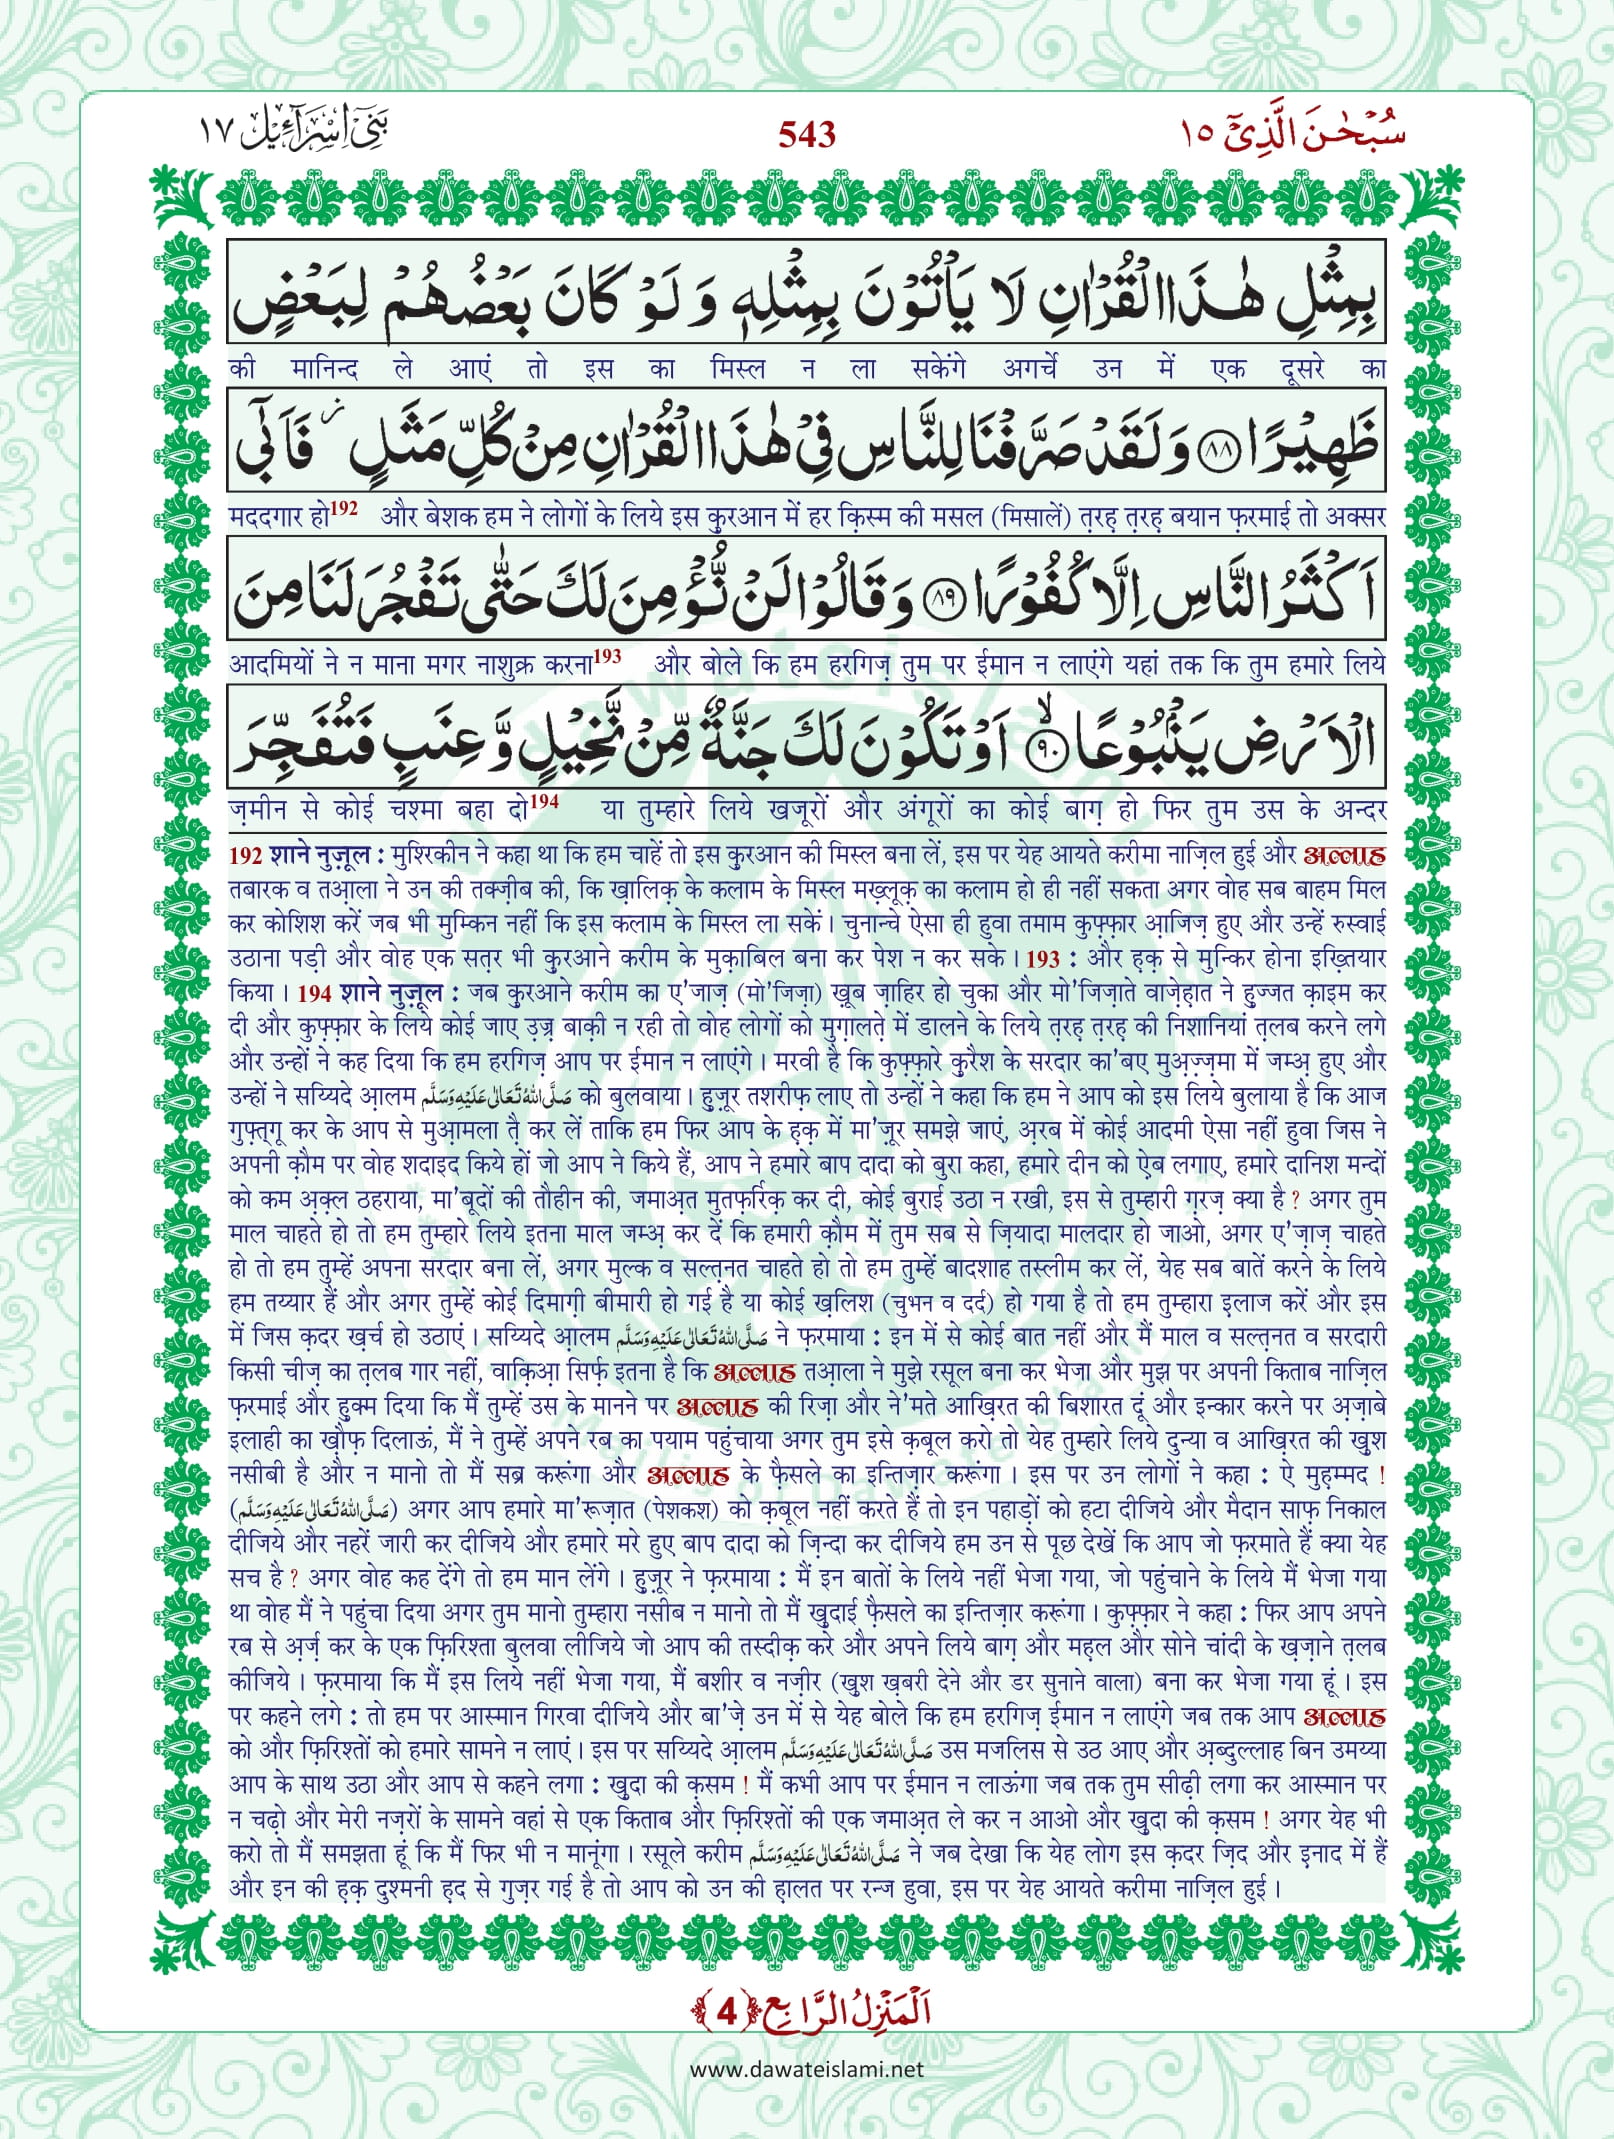 سُبْحٰنَ الَّذِیْۤ ١٥
543
بَنِیْۤ اِسْرَآءِیْل ١٧
بِمِثْلِ هٰذَا الْقُرْاٰنِ لَا یَاْتُوْنَ بِمِثْلِهٖ وَ لَوْ كَانَ بَعْضُهُمْ لِبَعْضٍ
की मानिन्द ले आएं तो इस का मिस्ल न ला सकेंगे अगर्चे उन में एक दूसरे का
ظَهِیْرًا ﴿٨٨﴾ وَ لَقَدْ صَرَّفْنَا لِلنَّاسِ فِیْ هٰذَا الْقُرْاٰنِ مِنْ كُلِّ مَثَلٍ ؗ فَاَبٰۤى
मददगार हो192 और बेशक हम ने लोगों के लिये इस कु़रआन में हर क़िस्म की मसल (मिसालें) त़रह़ त़रह़ बयान फ़रमाई तो अक्सर
اَكْثَرُ النَّاسِ اِلَّا كُفُوْرًا ﴿٨٩﴾ وَ قَالُوْا لَنْ نُّؤْمِنَ لَكَ حَتّٰى تَفْجُرَ لَنَا مِنَ
आदमियों ने न माना मगर नाशुक्र करना193 और बोले कि हम हरगिज़ तुम पर ईमान न लाएंगे यहां तक कि तुम हमारे लिये
الْاَرْضِ یَنْۢبُوْعًا ﴿٩٠﴾ۙ اَوْ تَكُوْنَ لَكَ جَنَّةٌ مِّنْ نَّخِیْلٍ وَّ عِنَبٍ فَتُفَجِّرَ
ज़मीन से कोई चश्मा बहा दो194 या तुम्हारे लिये खजूरों और अंगूरों का कोई बाग़ हो फिर तुम उस के अन्दर
192 शाने नुज़ूल : मुश्रिकीन ने कहा था कि हम चाहें तो इस कु़रआन की मिस्ल बना लें, इस पर येह आयते करीमा नाज़िल हुई और अल्लाह
तबारक व तआ़ला ने उन की तक्ज़ीब की, कि ख़ालिक़ के कलाम के मिस्ल मख़्लूक़ का कलाम हो ही नहीं सकता अगर वोह सब बाहम मिल
कर कोशिश करें जब भी मुम्किन नहीं कि इस कलाम के मिस्ल ला सकें। चुनान्चे ऐसा ही हुवा तमाम कुफ़्फ़ार आ़जिज़ हुए और उन्हें रुस्वाई
उठाना पड़ी और वोह एक सत़र भी कु़रआने करीम के मुक़ाबिल बना कर पेश न कर सके। 193 : और ह़क़ से मुन्किर होना इख़्तियार
किया। 194 शाने नुज़ूल : जब कु़रआने करीम का ए'जाज़ (मो'जिज़ा) ख़ूब ज़ाहिर हो चुका और मो'जिज़ाते वाज़ेह़ात ने हु़ज्जत क़ाइम कर
दी और कुफ़्फ़ार के लिये कोई जाए उ़ज़्र बाक़ी न रही तो वोह लोगों को मुग़ालते में डालने के लिये त़रह़ त़रह़ की निशानियां त़लब करने लगे
और उन्हों ने कह दिया कि हम हरगिज़ आप पर ईमान न लाएंगे। मरवी है कि कुफ़्फ़ारे क़ुरैश के सरदार का'बए मुअ़ज़्ज़मा में जम्अ़ हुए और
उन्हों ने सय्यिदे आ़लम صَلَّى اللهُ تَعَالٰى عَلَيْهِ وَسَلَّم को बुलवाया। हु़ज़ूर तशरीफ़ लाए तो उन्हों ने कहा कि हम ने आप को इस लिये बुलाया है कि आज
गुफ़्त्गू कर के आप से मुआ़मला त़ै कर लें ताकि हम फिर आप के ह़क़ में मा'ज़ूर समझे जाएं, अ़रब में कोई आदमी ऐसा नहीं हुवा जिस ने
अपनी क़ौम पर वोह शदाइद किये हों जो आप ने किये हैं, आप ने हमारे बाप दादा को बुरा कहा, हमारे दीन को ऐ़ब लगाए, हमारे दानिश मन्दों
को कम अ़क़्ल ठहराया, मा'बूदों की तौहीन की, जमाअ़त मुतफ़र्रिक़ कर दी, कोई बुराई उठा न रखी, इस से तुम्हारी ग़रज़ क्या है ? अगर तुम
माल चाहते हो तो हम तुम्हारे लिये इतना माल जम्अ़ कर दें कि हमारी क़ौम में तुम सब से ज़ियादा मालदार हो जाओ, अगर ए'ज़ाज़ चाहते
हो तो हम तुम्हें अपना सरदार बना लें, अगर मुल्क व सल्त़नत चाहते हो तो हम तुम्हें बादशाह तस्लीम कर लें, येह सब बातें करने के लिये
हम तय्यार हैं और अगर तुम्हें कोई दिमाग़ी बीमारी हो गई है या कोई ख़लिश (चुभन व दर्द) हो गया है तो हम तुम्हारा इलाज करें और इस
में जिस क़दर ख़र्च हो उठाएं। सय्यिदे आ़लम صَلَّى اللهُ تَعَالٰى عَلَيْهِ وَسَلَّم ने फ़रमाया : इन में से कोई बात नहीं और मैं माल व सल्त़नत व सरदारी
किसी चीज़ का त़लब गार नहीं, वाक़िआ़ सिर्फ़ इतना है कि अल्लाह तआ़ला ने मुझे रसूल बना कर भेजा और मुझ पर अपनी किताब नाज़िल
फ़रमाई और हु़क्म दिया कि मैं तुम्हें उस के मानने पर अल्लाह की रिज़ा और ने'मते आख़िरत की बिशारत दूं और इन्कार करने पर अ़ज़ाबे
इलाही का ख़ौफ़ दिलाऊं, मैं ने तुम्हें अपने रब का पयाम पहुंचाया अगर तुम इसे क़बूल करो तो येह तुम्हारे लिये दुन्या व आख़िरत की ख़ुश
नसीबी है और न मानो तो मैं सब्र करूंगा और अल्लाह के फ़ैसले का इन्तिज़ार करूंगा। इस पर उन लोगों ने कहा : ऐ मुह़म्मद !
(صَلَّى اللهُ تَعَالٰى عَلَيْهِ وَسَلَّم) अगर आप हमारे मा'रूज़ात (पेशकश) को क़बूल नहीं करते हैं तो इन पहाड़ों को हटा दीजिये और मैदान साफ़ निकाल
दीजिये और नहरें जारी कर दीजिये और हमारे मरे हुए बाप दादा को ज़िन्दा कर दीजिये हम उन से पूछ देखें कि आप जो फ़रमाते हैं क्या येह
सच है ? अगर वोह कह देंगे तो हम मान लेंगे। हु़ज़ूर ने फ़रमाया : मैं इन बातों के लिये नहीं भेजा गया, जो पहुंचाने के लिये मैं भेजा गया
था वोह मैं ने पहुंचा दिया अगर तुम मानो तुम्हारा नसीब न मानो तो मैं ख़ुदाई फ़ैसले का इन्तिज़ार करूंगा। कुफ़्फ़ार ने कहा : फिर आप अपने
रब से अ़र्ज़ कर के एक फ़िरिश्ता बुलवा लीजिये जो आप की तस्दीक़ करे और अपने लिये बाग़ और मह़ल और सोने चांदी के ख़ज़ाने त़लब
कीजिये। फ़रमाया कि मैं इस लिये नहीं भेजा गया, मैं बशीर व नज़ीर (ख़ुश ख़बरी देने और डर सुनाने वाला) बना कर भेजा गया हूं। इस
पर कहने लगे : तो हम पर आस्मान गिरवा दीजिये और बा'ज़े उन में से येह बोले कि हम हरगिज़ ईमान न लाएंगे जब तक आप अल्लाह
को और फ़िरिश्तों को हमारे सामने न लाएं। इस पर सय्यिदे आ़लम صَلَّى اللهُ تَعَالٰى عَلَيْهِ وَسَلَّم उस मजलिस से उठ आए और अ़ब्दुल्लाह बिन उमय्या
आप के साथ उठा और आप से कहने लगा : ख़ुदा की क़सम ! मैं कभी आप पर ईमान न लाऊंगा जब तक तुम सीढ़ी लगा कर आस्मान पर
न चढ़ो और मेरी नज़रों के सामने वहां से एक किताब और फ़िरिश्तों की एक जमाअ़त ले कर न आओ और ख़ुदा की क़सम ! अगर येह भी
करो तो मैं समझता हूं कि मैं फिर भी न मानूंगा। रसूले करीम صَلَّى اللهُ تَعَالٰى عَلَيْهِ وَسَلَّم ने जब देखा कि येह लोग इस क़दर ज़िद और इ़नाद में हैं
और इन की ह़क़ दुश्मनी ह़द से गुज़र गई है तो आप को उन की ह़ालत पर रन्ज हुवा, इस पर येह आयते करीमा नाज़िल हुई।
اَلْمَنْزِلُ الرَّابِع ﴿4﴾
www.dawateislami.net